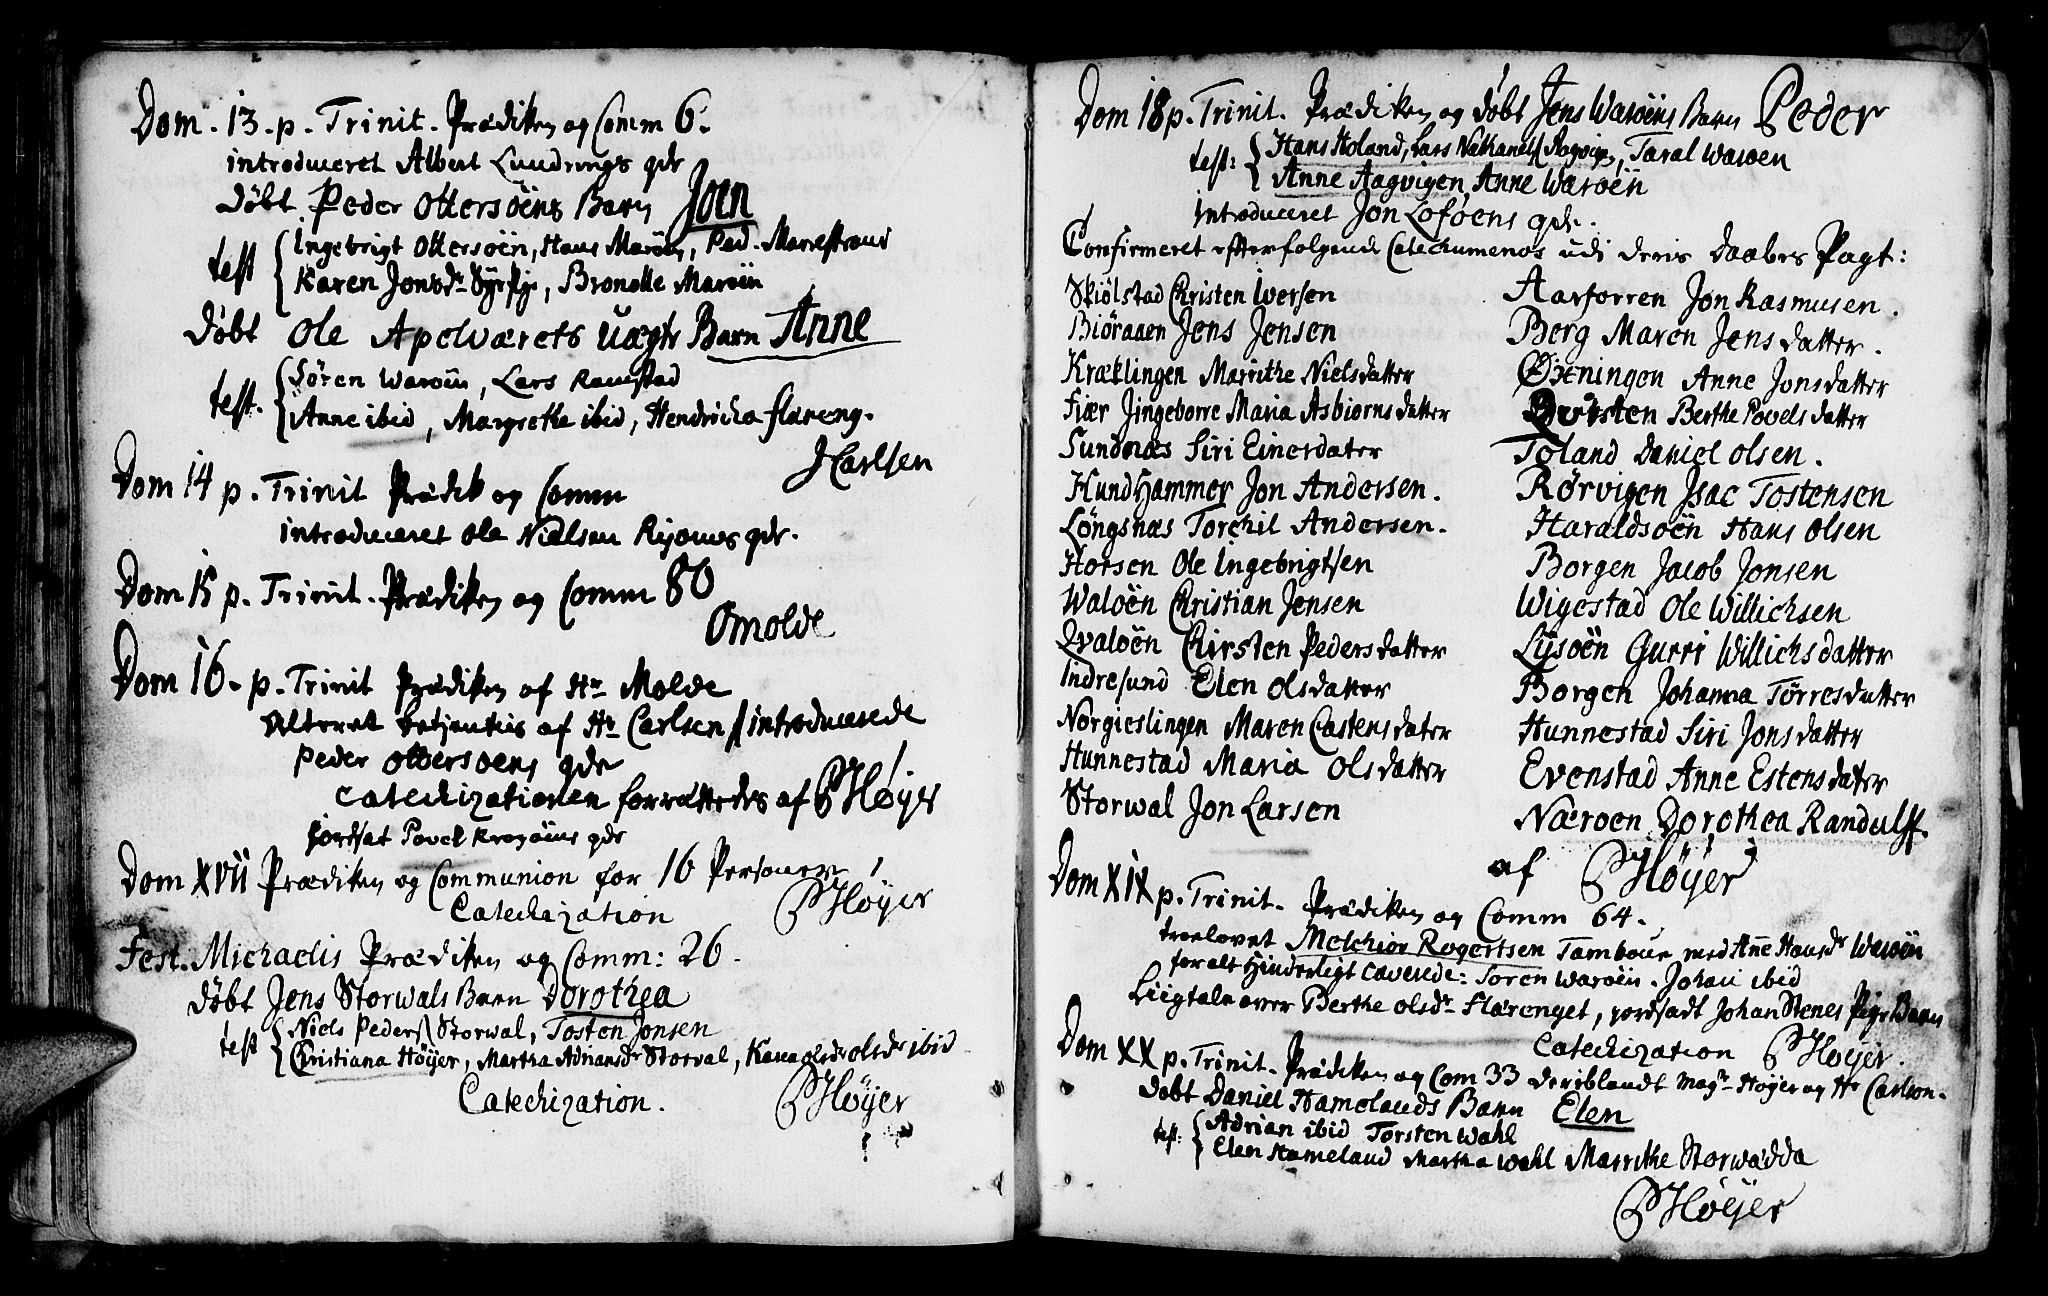 Dom. 13. p. Trinit. Prædiken og Comm 6.
introduceret Albert Lundrings qdr
Døbt Peder Ottersøens Barn Joen
test { Ingebrigt Ottersøen, Hans Marøen, Ped. Marrestrand
Karen Jonsdr , Bronelle Marøen
Døbt Ole Apelværets Uægte Barn Anne
test. { Søren Warøen, Lars Ramstad
Anne ibid, Margrethe ibid, Hendricha flæreng.
JCarlsen
Dom 14 p. Trinit Prædik og Comm
introduceret Ole Nielsen qdr.
Dom 15 p. Trinit. Prædiken og Comm 80
OMolde
Dom 16. p. Trinit Prædiken af Hr Molde
Alteret betjentes af Hr Carlsen // introducerede
Peder Ottersøens qdr
Catechizationen forrettedes af PHøyer
jordsat Povel qdr
Dom XVII Prædiken og Communion for 16 Personer
Catechization PHøyer
Fest. Michaelis Prædiken og Comm: 26.
Døbt Jens Storwals Barn Dorothea
test { Niels Peders Storwal, Tosten Jonsen
Christiana Høyer, Martha Adriansdr Storval, olsdr ibid
Catechization. PHøyer
Dom 18 p. Trinit. Prædiken og døbt Jens Warøens Barn Peder
test: { Hans Holand, Lars Nathanels Aagvigen, Taral Warøen
Anne Aagvigen, Anne Warøen
Introduceret Jon Loføens qdr.
Confirmeret efterfølgende Catechumenos udi deris Daabes Pagt:
Skiølstad Christen Iversen
Biøraaen Jens Jensen
Kræklingen Marrithe Nielsdatter
Fiær Jingeborre Maria Asbiørnsdatter
Sundnæs Siri Einersdater
Hundhammer Jon Andersen.
Løngsnæs Torchil Andersen.
Horsen Ole Ingebrigtsen
Waløen Christian Jensen
Qvaløen Chirsten Pedersdatter
Indresund Elen Olsdatter
Nørgieslingen Maren Castensdater
Hunnestad Maria Olsdatter
Storwal Jon Larsen
Aarforren Jon Rasmusen.
Berg Maren Jensdatter.
Øxningen Anne Jonsdatter
Berthe Povelsdatter
Toland Daniel Olsen.
Rørvigen Isac Tostensen
Haraldsøen Hans Olsen
Borgen Jacob Jonsen
Wigestad Ole Willichsen
Lysøen Gurri Willichsdatter
Borgen Johanna Tørresdatter
Hunnestad Siri Jonsdatter
Evenstad Anne Estensdater
Nærøen Dorothea Randulff.
af PHøyer
Dom XIX p. Trinit. Prædiken og Comm 64.
troelovet Melchior Rogertsen Tambour med Anne Hansdr Warøen
for alt Hinderligt caverede: Søren Warøen. Johan ibid
Liigtale over Berthe Olsdr Flærenget, jordsadt Johan Stenes Pige Barn
Catechization PHøyer.
Dom XX p. Trinit. Prædiken og Com 33 deriblandt Magr Høyer og Hr Carlson.
Døbt Daniel Hamelands Barn Elen
test: { Adrian ibid Torsten Wahl
Elen Hameland Martha Wahl Marrithe Storwadda
PHøyer